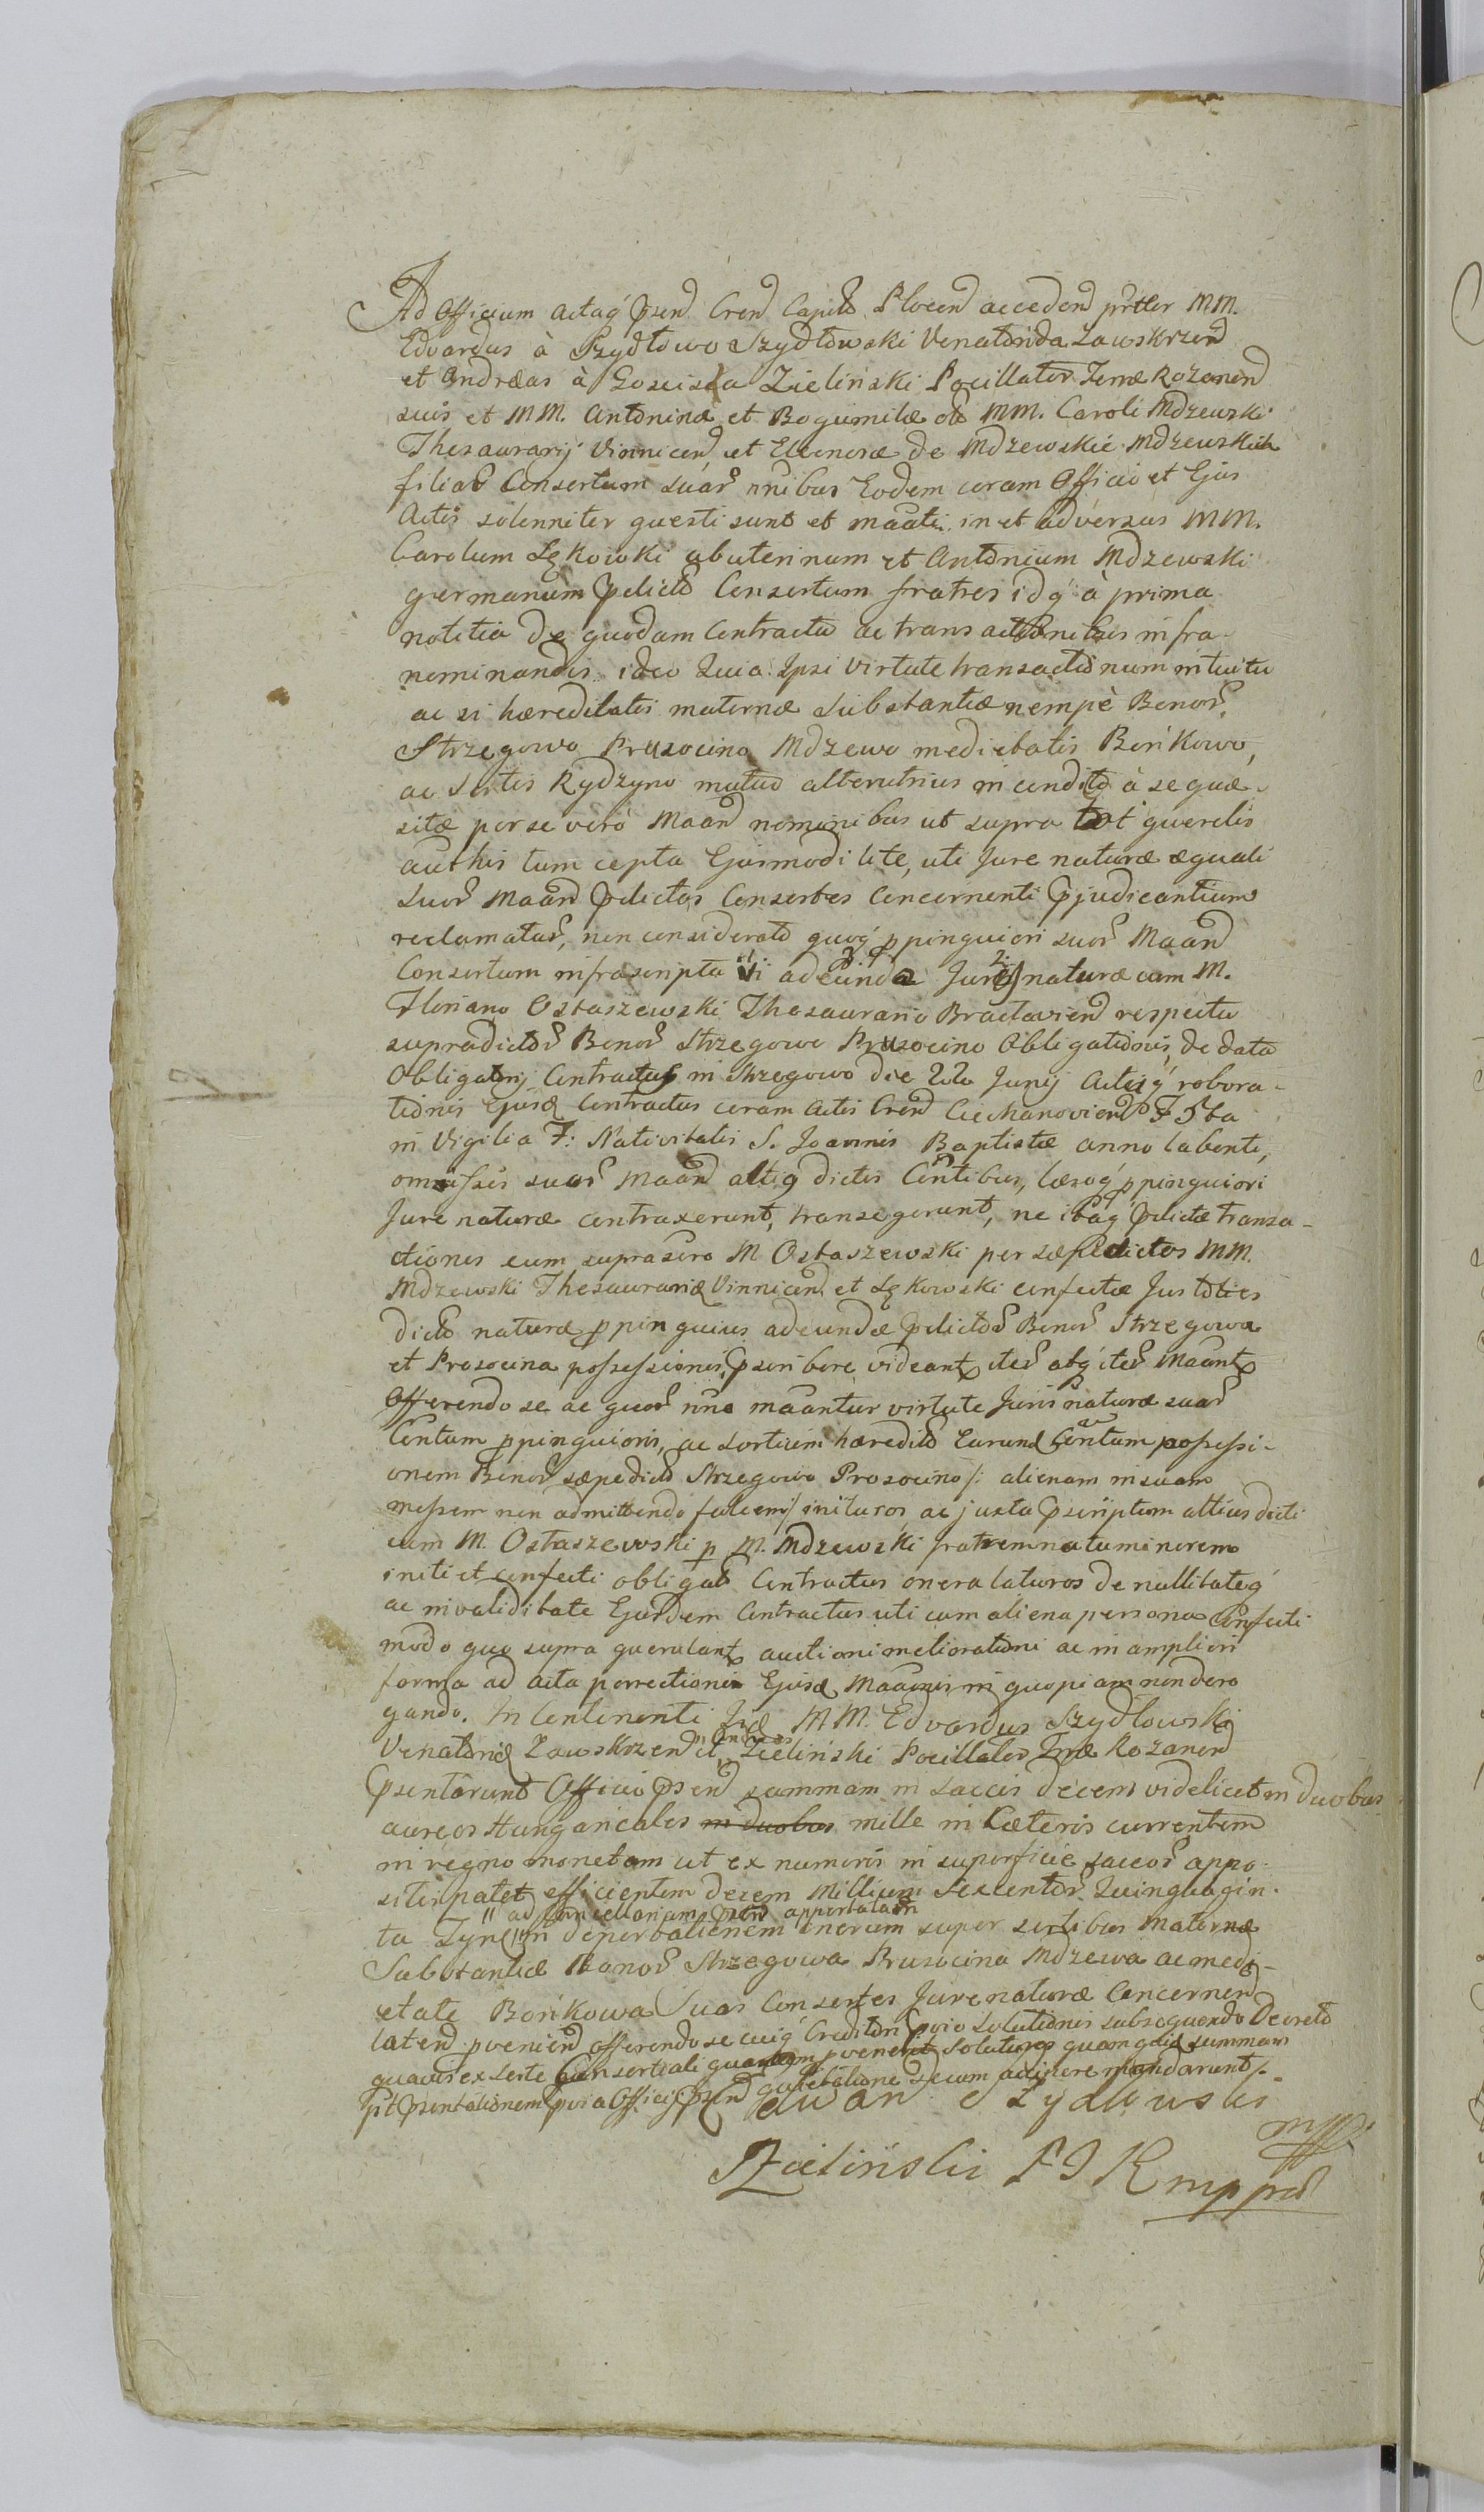 Ad Officium Actaq́ psend Crend Capitd Plocend accedend psitter MM.
Edvardus à Szydłowo Szydłowski Venatorida Zawskrzend
et Andræas à Goscisła Zieliński Pocillator Terræ Rozanend
suis et MM. Antoninæ et Bogumilæ olt MM. Caroli Mdzewski
Thesaurarij Vinnicend, et Eleonoræ de Mdzewskie Mdzewskich
filiar Consortum suar nnibus Eodem coram Officio et Ejus
Actis solenniter questi sunt et maati in et adversus MM.
Carolum Łękowski abuterinum et Antonium Mdzewski
germanum pdictd Consortum fratres idq́ à prima
notitia de quodam Contractu ac transactionibus infra
nominandis ideo Quia Ipsi virtute transactionum intuitu
ac si hæreditatis maternæ Substantiæ nempè Bonor
Strzegowo Prusocino Mdzewo medietatis Bońkowo,
ac Sortis Rydzyno mutuo alterutrius in condito à se quæ-
sitæ per se verò Maand nominibus ut supra tot querelis
authis tum cepta Ejusmodi lite, uti Jure naturæ æquali
Suor Maand pdictas Consortes Concernenti pjudicantium
reclamatur, non considerato quoq́ ppinquiori suor Maand
Consortum infrascripta vi adeunda Juris naturæ cum M.
Floriano Ostaszewski Thesaurario Bractaviend respectu
supradictor Bonor Strzegowo Prusocino Obligationis, de data
Obligatorij Contractus in Strzegowo die 22 Junij Actisq́ robora-
tionis Ejusd Contractus coram Actis Crend Ciechanoviend F 5ta
in Vigilia F: Nativitatis S. Joannis Baptistæ anno labenti,
omissis suar Maand altiq dictis Contibus, læsoq́ ppinquiori
Jure naturæ contraxerunt, transegerunt, ne itaq́ pdictæ transa-
ctiones cum suprasero M Ostaszewski per sæpedictos MM.
Mdzewski Thesaurarid Vinnicend et Łękowski confectæ Jus toties
dictd naturæ ppinquius adeundæ pdictor Bonor Strzegowa
et Prosocina possessionis, pscribere videant iter atq́ iter Maant
Offerendo se ac quor nne maantur virtute Juris naturæ suar
Contum ppinquioris, ac sortium hæreditd Earund Contum possessi-
onem Bonor sæpedictd Strzegowo Prosocino /: alienam in suam
messem non admittendo falcem :/ inituros, ac juxta pscriptum altius dicti
cum M. Ostaszewski p M. Mdzewski fratrem natu minorem
initi et confecti obligatd Contractus onera laturos de nullitateq́
ac invaliditate Ejusdem Contractus uti cum aliena persona Confecti
modo quo supra querulant auctioni meliorationi ac in ampliori
forma ad acta porrectionis Ejusd Maaonis in quopiam non dero
gando. In Continenti Iid MM. Edvardus Szydłowski
Venatorid Zawskrzend et "Andreas" Zieliński Pocillator Træ Rozanend
psentarunt Officio psend summam in saccis decem videlicet in duobus
aureos Hungaricales in duobus mille in Cæteris currentem
in regno monetam ut ex numeris in superficie saccor appo-
sitis patet efficientem decem Millium Sexcentor Quinquagin-
ta "ad Cancellariam psend apportatam"
in deportationem onerum super sortibus maternæ
Substantiæ Bonor Strzegowa Prusocina Mdzewa ac medi-
etate Bońkowa Suas Consortes Jure naturæ Concernend
latend pveniend offerendo se cuiq́ Creditori pvio Solutionis subsequendo Decreto
quavis ex Sorte Consortiali quantum pvenerit soluturos quamquid summam
pt psentationem pvia Officij psend quietatione Secum accipere mandarunt /-
Edward Szydłowski
mpp
AZieliński P Z R mpp